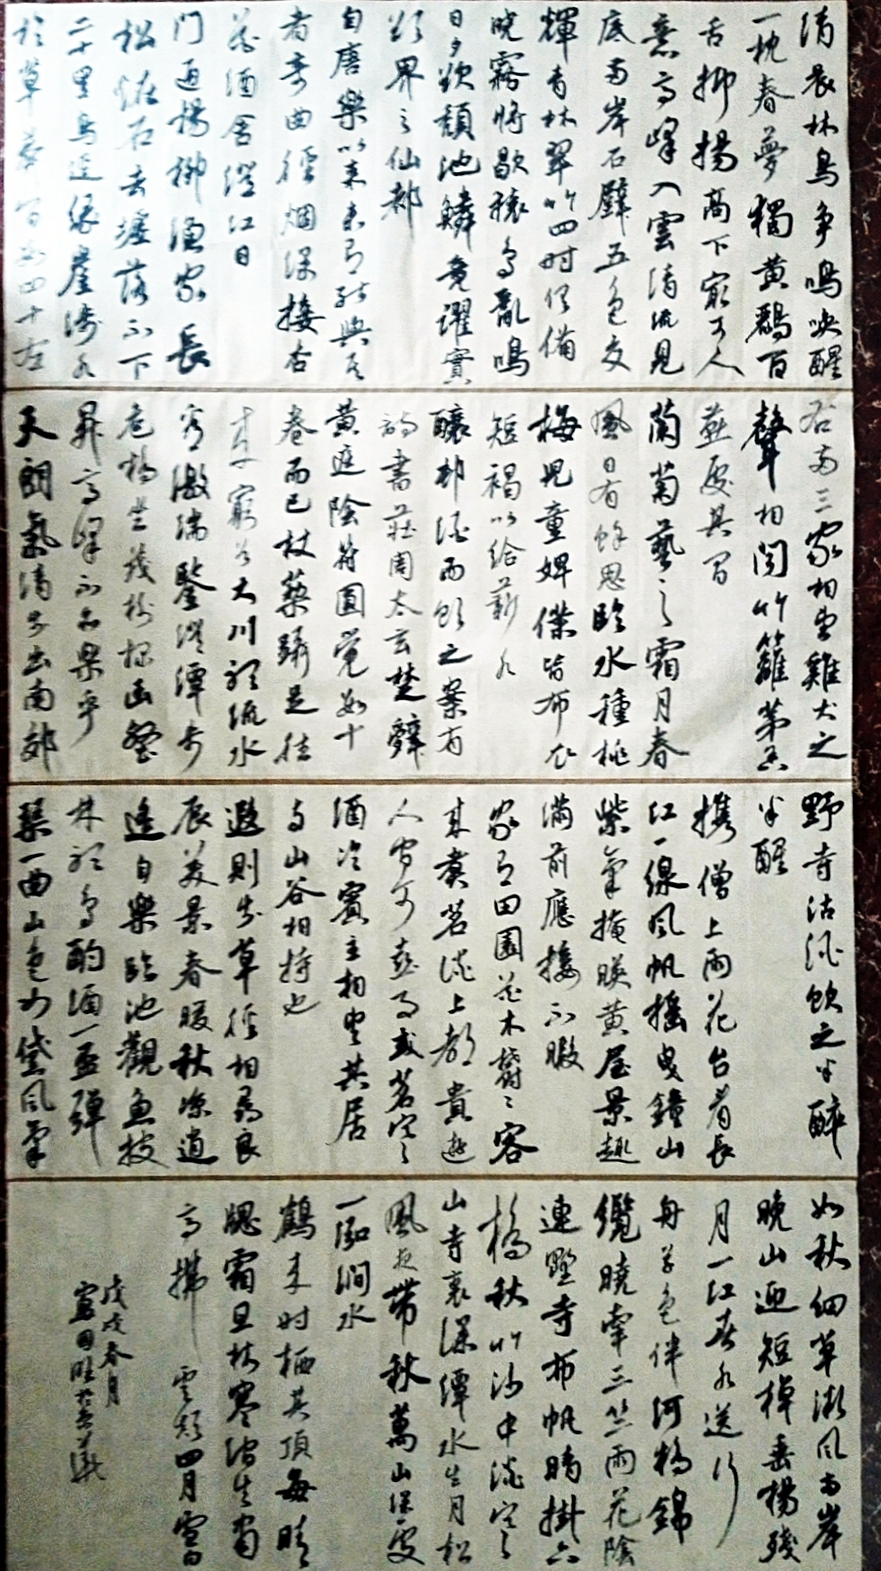 清晨林鳥争鳴唤醒
一枕春夢獨黄鸝百
舌抑揚高下最可人
意高峰入雲清流見
底兩岸石壁五色交
輝青林翠竹四時俱備
曉霧將歇猿鳥亂鳴
日夕欲頹池鱗競躍實
欲界之仙都
自唐樂以來未有能與其
者奇曲徑烟深接杏
花酒舍澄江日
门通楊柳漁家長
松怪石去墟落不下
二十里鳥逕緣崖涉水
於草莽間数四十左
右兩三家相望雞犬之
聲相聞竹籬茅舍
燕處其間
蘭菊藝之霜月春
風日有餘思臨水種桃
梅児童婢僕皆布衣
短褐以給薪水
釀村酒而飲之案有
詩書莊周太玄楚辭
黄庭陰符圓覺数十
卷而已杖藜躡屐往
来窮谷大川聽流水
看激湍鑒澄潭步
危橋坐茂樹探幽壑
昇高峰不亦樂乎
天朗氣清步出南郊
野寺沽酒飲之半醉
半醒
携僧上雨花台看長
江一線風帆摇曳鐘山
紫氣掩映黄屋景趣
滿前應接不暇
家有田園花木欝〻容
来煮茗談上都貴遊
人間可喜事或茗寒
酒冷賓主相忘其居
与山谷相持也
暇則步草徑相尋良
辰美景春暖秋凉逍
遥自樂臨池觀魚披
林聽鳥酌酒一盃彈
琴一曲山色如黛風氣
如秋細草微風兩岸
晚山迎短棹垂楊殘
月一江春水送行
舟草色伴河橋錦
纜曉牽三竺雨花陰
連野寺布帆晴掛六
橋秋竹沙中流寒
山寺裏深潭水生月松
風夜帶秋萬山深處
一泓澗水
鶴来時栖其頂每晴
颸霜旦林寒澗生肅
高拂 雲頽四月雪
戊戌春月